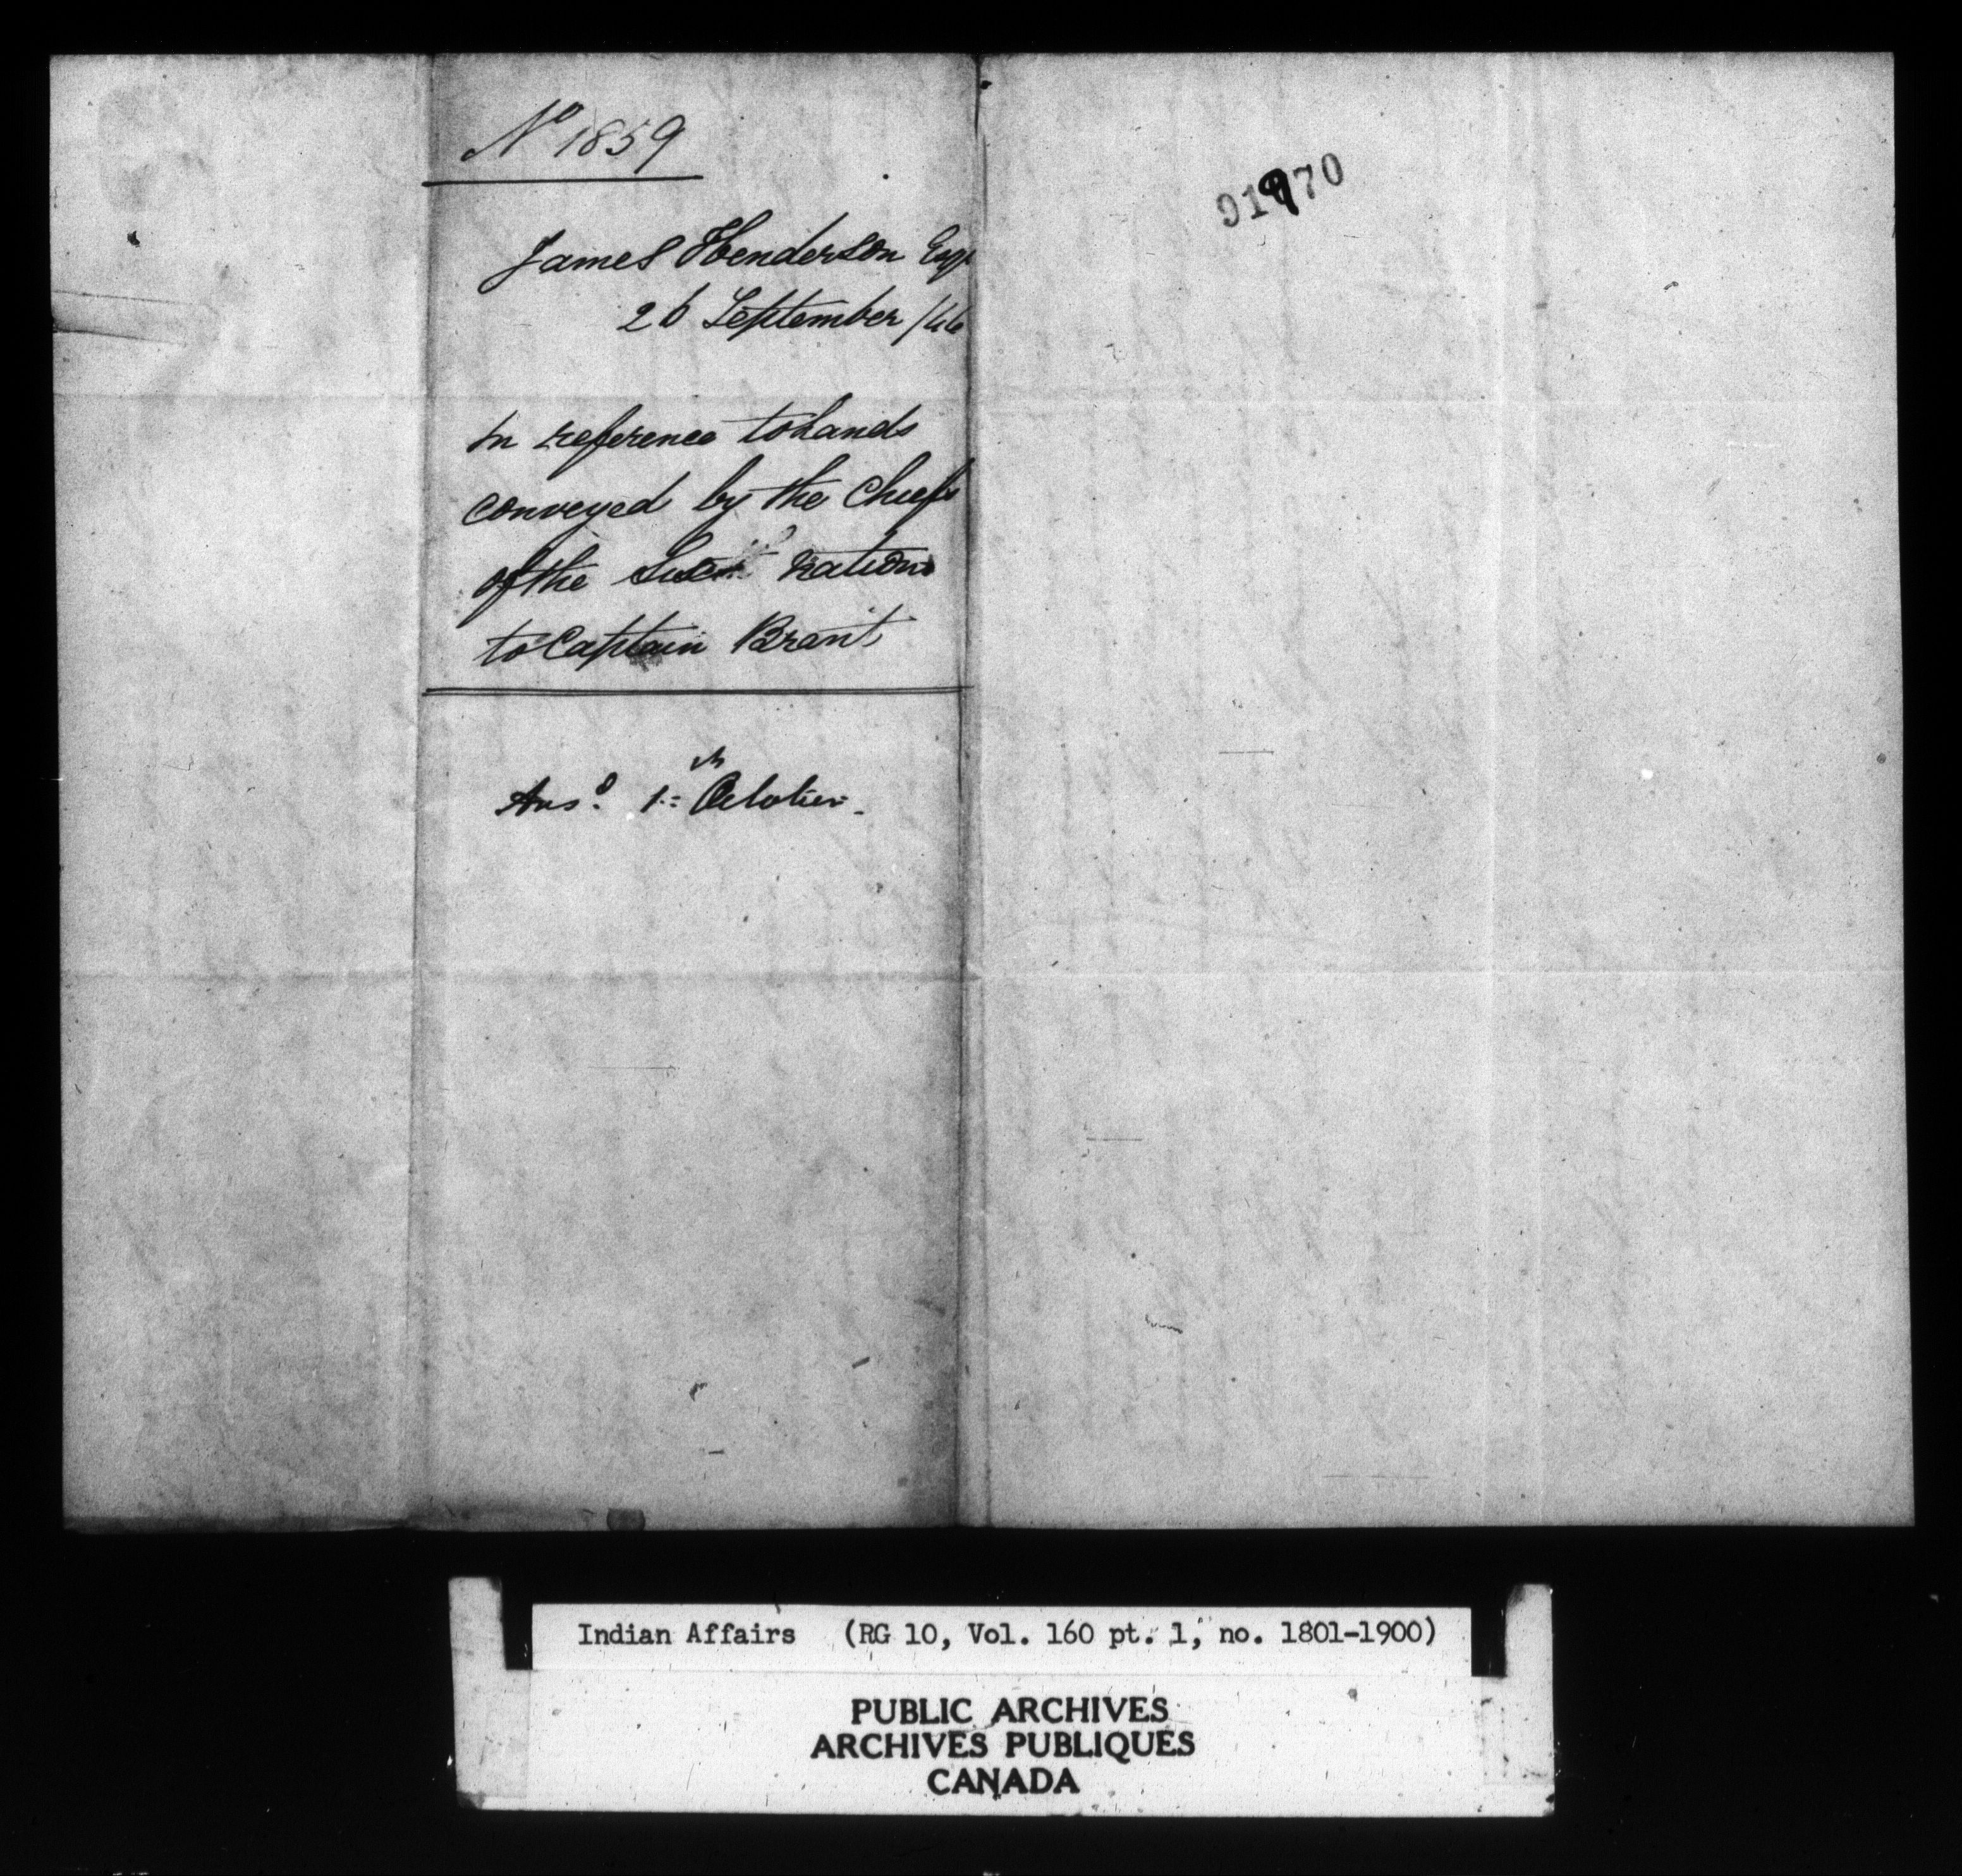 No 1859
James Henderson Esqr
26 September /46
In reference to Lands
conveyed by the Chiefs
of the Nations
to Captain Brant
Ansd. 1st October.
91970
Indian Affairs (RG 10, Vol. 160 pt. 1, no. 1801-1900)
PUBLIC ARCHIVES
ARCHIVES PUBLIQUES
CANADA